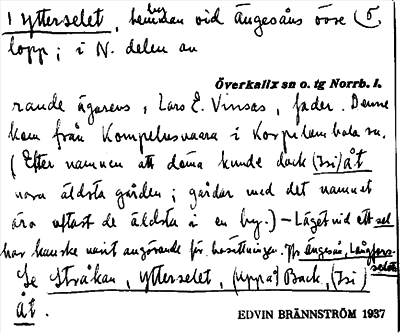 1 Ytterselet, hemman vid Ängesåns övre 5
lopp; i N. delen av
Överkalix sn o. tg Norrb. l.
rande ägarens, Lars E. Vinsas, fader. Denne
kom från Kompelusvaara i Korpilombolo sn.
(Efter namnen att döma kunde dock (Isi) åt
vara äldsta gården; gårdar med det namnet
äro oftast de äldsta i en by.) – Läget vid ett sel
har kanske varit avgörande för bosättningen. Jfr Ängeså, Långfors-
selet.
Se Stråkan, Ytterselet, (Uppå) Back, (Isi)
åt.
EDVIN BRÄNNSTRÖM 1937